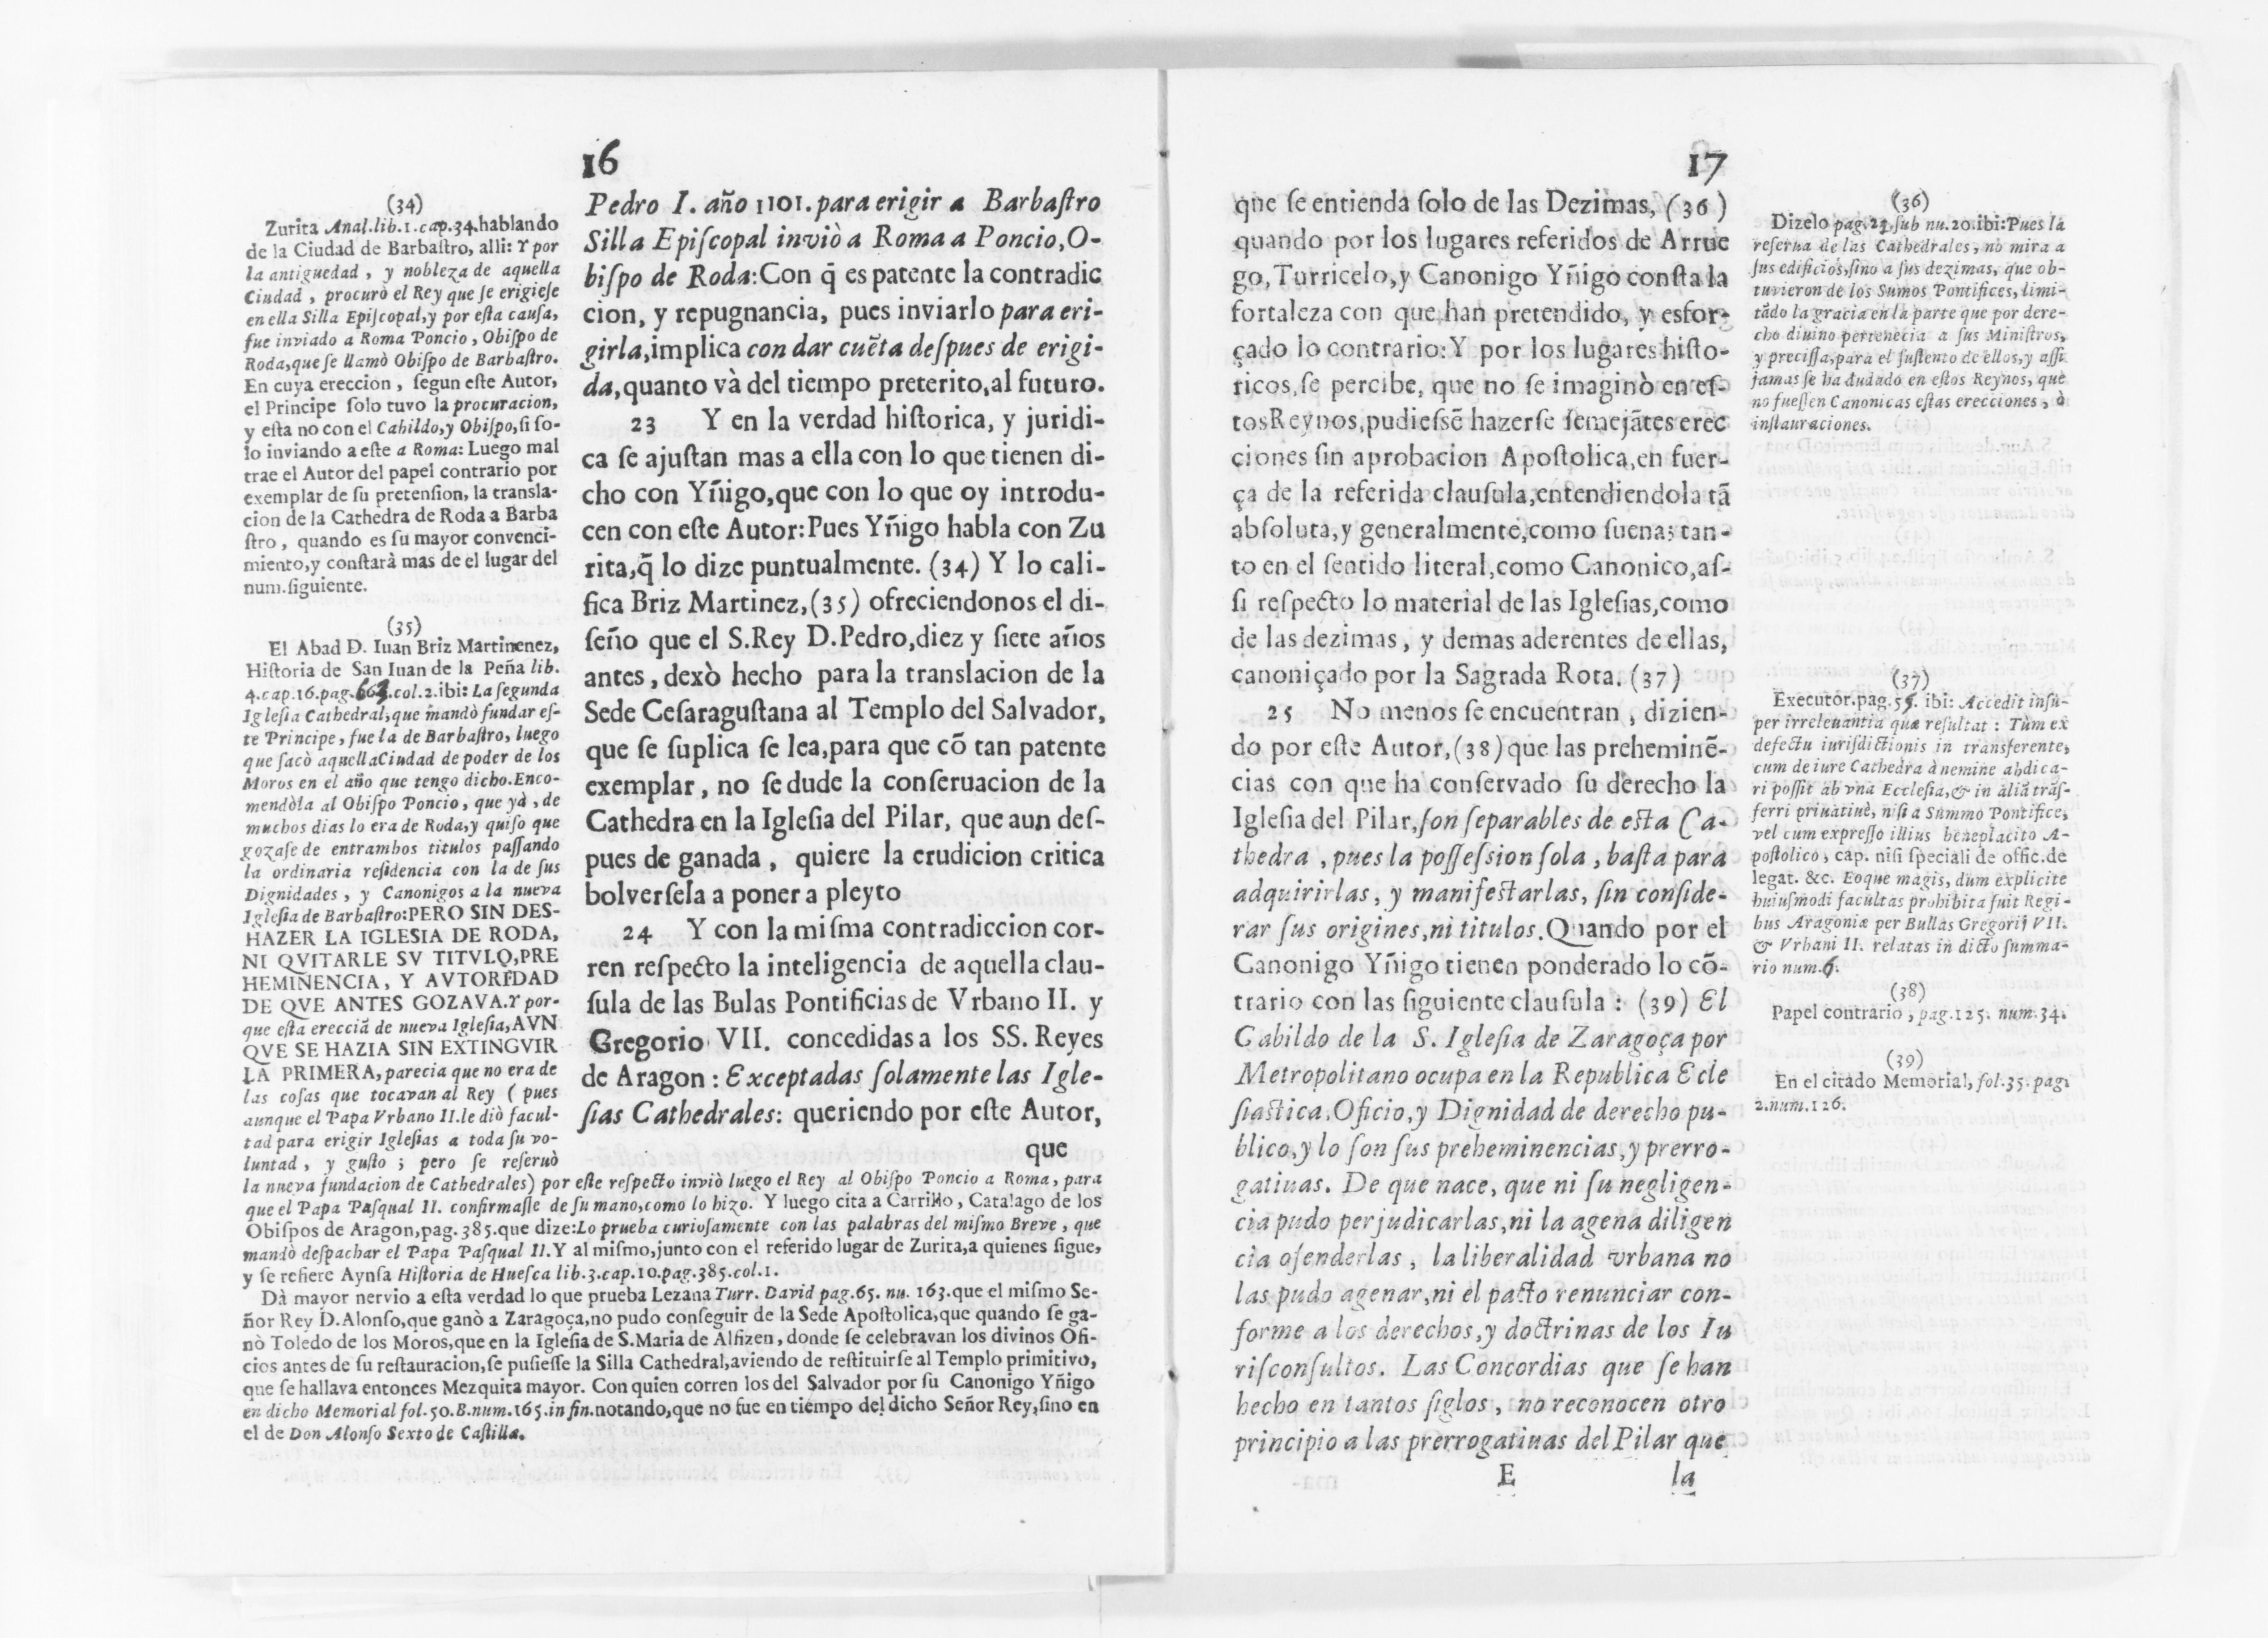 16
(34)
Zurita Anal.lib.1.cap.34.hablando
de la Ciudad de Barbaſtro, alli: Y por
la antiguedad , y nobleza de aquella
Ciudad , procurò el Rey que ſe erigieſe
en ella Silla Epiſcopal,y por eſta cauſa,
fue inviado a Roma Poncio , Obiſpo de
Roda,que ſe llamò Obiſpo de Barbaſtro.
En cuya ereccion , ſegun eſte Autor,
el Principe ſolo tuvo la procuracion,
y eſta no con el Cabildo,y Obiſpo,ſi ſo-
lo inviando a eſte a Roma: Luego mal
trae el Autor del papel contrario por
exemplar de ſu pretenſion, la transla-
cion de la Cathedra de Roda a Barba
ſtro , quando es ſu mayor convenci-
miento,y conſtarà mas de el lugar del
num.ſiguiente.
(35)
El Abad D. Iuan Briz Martinenez,
Hiſtoria de San Iuan de la Peña lib.
4.cap.16.pag.663.col.2.ibi: La ſegunda
Igleſia Cathedral,que mandò fundar eſ-
te Principe, fue la de Barbaſtro, luego
que ſacò aquellaCiudad de poder de los
Moros en el año que tengo dicho.Enco-
mendòla al Obiſpo Poncio, que yà , de
muchos dias lo era de Roda,y quiſo que
gozaſe de entrambos titulos paſſando
la ordinaria reſidencia con la de ſus
Dignidades , y Canonigos a la nueva
Igleſia de Barbaſtro:PERO SIN DES-
HAZER LA IGLESIA DE RODA,
NI QVITARLE SV TITVLO,PRE
HEMINENCIA, Y AVTORIDAD
DE QVE ANTES GOZAVA.Y por-
que eſta erecciã de nueva Igleſia,AVN
QVE SE HAZIA SIN EXTINGVIR
LA PRIMERA,parecia que no era de
las coſas que tocavan al Rey ( pues
aunque el Papa Vrbano II.le diò facul-
tad para erigir Igleſias a toda ſu vo-
luntad , y guſto ; pero ſe reſeruò
la nueva fundacion de Cathedrales) por eſte reſpecto inviò luego el Rey al Obiſpo Poncio a Roma, para
que el Papa Paſqual II. confirmaſſe de ſu mano,como lo hizo. Y luego cita a Carrillo , Catalago de los
Obiſpos de Aragon,pag.385.que dize:Lo prueba curioſamente con las palabras del miſmo Breve , que
mandò deſpachar el Papa Paſqual II.Y al miſmo,junto con el referido lugar de Zurita,a quienes ſigue,
y ſe refiere Aynſa Hiſtoria de Hueſca lib.3.cap.10.pag.385.col.1.
Dà mayor nervio a eſta verdad lo que prueba Lezana Turr. David pag.65. nu. 163.que el miſmo Se-
ñor Rey D.Alonſo,que ganò a Zaragoça,no pudo conſeguir de la Sede Apoſtolica,que quando ſe ga-
nò Toledo de los Moros,que en la Igleſia de S.Maria de Alfizen , donde ſe celebravan los divinos Ofi-
cios antes de ſu reſtauracion,ſe puſieſſe la Silla Cathedral,aviendo de reſtituirſe al Templo primitivo,
que ſe hallava entonces Mezquita mayor. Con quien corren los del Salvador por ſu Canonigo Yñigo
en dicho Memorial fol.50.B.num.165.in fin.notando,que no fue en tiempo del dicho Señor Rey,ſino en
el de Don Alonſo Sexto de Caſtilla.
Pedro I. año 1101.para erigir a Barbaſtro
Silla Epiſcopal inviò a Roma a Poncio,O-
biſpo de Roda:Con q̃ es patente la contradic
cion, y repugnancia, pues inviarlo para eri-
girla,implica con dar cuẽta deſpues de erigi-
da,quanto và del tiempo preterito,al futuro.
23 Y en la verdad hiſtorica, y juridi-
ca ſe ajuſtan mas a ella con lo que tienen di-
cho con Yñigo,que con lo que oy introdu-
cen con eſte Autor:Pues Yñigo habla con Zu
rita,q̃ lo dize puntualmente. (34) Y lo cali-
fica Briz Martinez,(35) ofreciendonos el di-
ſeño que el S.Rey D.Pedro,diez y ſiete años
antes , dexò hecho para la translacion de la
Sede Ceſaraguſtana al Templo del Salvador,
que ſe ſuplica ſe lea,para que cõ tan patente
exemplar , no ſe dude la conſeruacion de la
Cathedra en la Igleſia del Pilar, que aun deſ-
pues de ganada , quiere la erudicion critica
bolverſela a poner a pleyto
24 Y con la miſma contradiccion cor-
ren reſpecto la inteligencia de aquella clau-
ſula de las Bulas Pontificias de Vrbano II. y
Gregorio VII. concedidas a los SS. Reyes
de Aragon : Exceptadas ſolamente las Igle-
ſias Cathedrales: queriendo por eſte Autor,
que
17
que ſe entienda ſolo de las Dezimas, (36)
quando por los lugares referidos de Arrue
go,Turricelo,y Canonigo Yñigo conſta la
fortaleza con que han pretendido, y esfor-
çado lo contrario: Y por los lugares hiſto-
ricos,ſe percibe, que no ſe imaginò en eſ-
tosReynos,pudieſsẽ hazerſe ſemejãtes erec
ciones ſin aprobacion Apoſtolica,en fuer-
ça de la referida clauſula,entendiendola tã
abſoluta,y generalmente,como ſuena; tan-
to en el ſentido literal,como Canonico,aſ-
ſi reſpecto lo material de las Igleſias,como
de las dezimas , y demas aderentes de ellas,
canoniçado por la Sagrada Rota. (37)
25 No menos ſe encuentran , dizien-
do por eſte Autor,(38)que las preheminẽ-
cias con que ha conſervado ſu derecho la
Igleſia del Pilar,ſon ſeparables de eſta Ca-
thedra , pues la poſſeſsion ſola , baſta para
adquirirlas , y manifeſtarlas, ſin conſide-
rar ſus origines,ni titulos.Quando por el
Canonigo Yñigo tienen ponderado lo cõ-
trario con las ſiguiente clauſula : (39) El
Cabildo de la S. Igleſia de Zaragoça por
Metropolitano ocupa en la Republica Ecle
ſiaſtica,Oficio,y Dignidad de derecho pu-
blico,y lo ſon ſus preheminencias,y prerro-
gatiuas. De que nace, que ni ſu negligen-
cia pudo perjudicarlas,ni la agena diligen
cia ofenderlas , la liberalidad vrbana no
las pudo agenar,ni el pacto renunciar con-
forme a los derechos,y doctrinas de los Iu
riſconſultos. Las Concordias que ſe han
hecho en tantos ſiglos , no reconocen otro
principio a las prerrogatiuas del Pilar que
E la
(36)
Dizelo pag.21.ſub nu.20.ibi:Pues la
reſerua de las Cathedrales, no mira a
ſus edificios,ſino a ſus dezimas, que ob-
tuvieron de los Sumos Pontifices, limi-
tãdo la gracia en la parte que por dere-
cho diuino pertenecia a ſus Miniſtros,
y preciſſa,para el ſuſtento de ellos,y aſſi
jamas ſe ha dudado en eſtos Reynos, que
no fueſſen Canonicas eſtas erecciones , ò
inſtauraciones.
(37)
Executor.pag.55. ibi: Accedit inſu-
per irreleuantia quæ reſultat : Tùm ex
defectu iuriſdictionis in transferente,
cum de iure Cathedra à nemine abdica-
ri poſſit ab vna Eccleſia,& in aliã trãſ-
ferri priuatiuè, niſi a Summo Pontifice,
vel cum expreſſo illius beneplacito A-
poſtolico, cap. niſi ſpeciali de offic.de
legat. &c. Eoque magis, dum explicite
huiuſmodi facultas prohibita fuit Regi-
bus Aragoniæ per Bullas Gregorij VII.
& Vrbani II. relatas in dicto ſumma-
rio num.6.
(38)
Papel contrario , pag.125. num.34.
(39)
En el citado Memorial, fol.35. pag.
2.num.126.